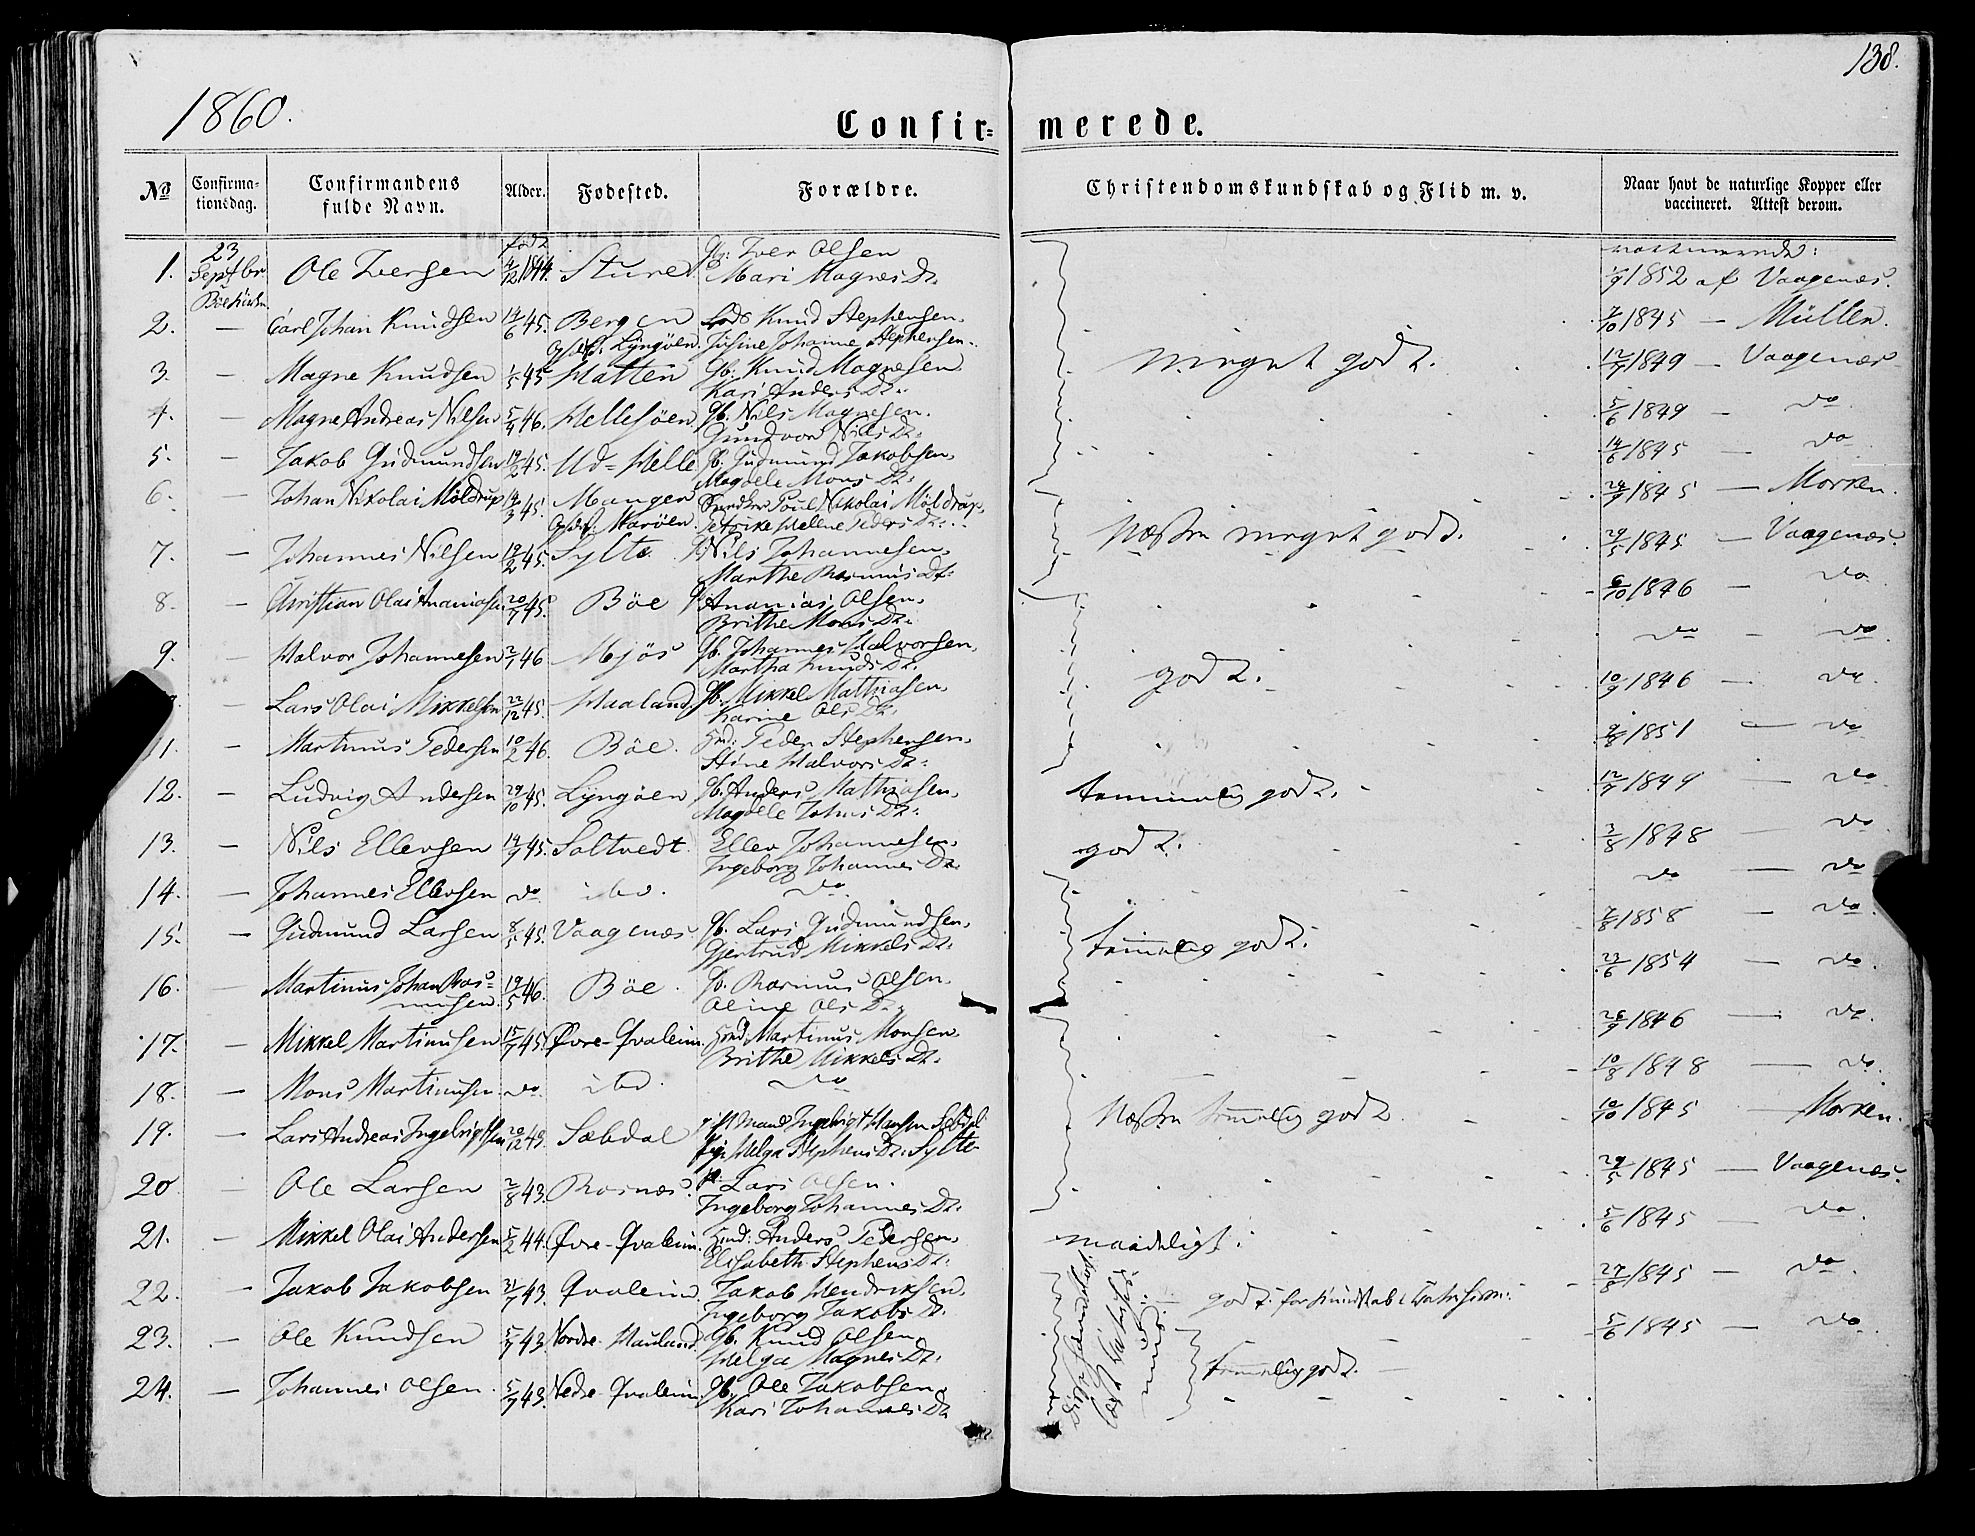 138.
1860.
Confir= merede.
No Confirmationsdag. Confirmandens fulde Navn. Alder. Fødested. Forældre. Christendomskundskab og Flid m. v. Naar havt de naturlige Kopper eller vaccineret. Attest derom.
1. 23 Septbr. Ole Iversen född 4/12 1844. Sture Gb: Iver Olsen 1/9 1852 af Vaagenæs.
Mari Magnes Dt:
2. — Carl Johan Knudsen 14/6 45. Bergen Knud Stephensen. 7/10 1845 — Müller.
Opsdf. Lyngöen. Johanne Stephensen.
3. — Magne Knudsen 45 Hatten Gb. Knud Magnesen meget godt. 12/7 1849 — Vaagenæs
Kari Anders Dt:
4. — Magne Andreas Nilsen 5/4 46. Hellesöen Gb. Nils Magnesen. 5/6 1849 — do
Gundvor Nils Dt:
5. — Jakob Gudmundsen 19/2 45. Ud=Helle Gb. Gudmund Jakobsen. 14/6 1845 — do
Magdele Mons Dt:
6. — Johan Nikolai Möldrup 14/3 45. Manger Poul Nikolai Möldrup, 1845 — Morken.
Opsdf. Maröen. Helene Peders Dt:
7. — Johannes Nilsen 19/2 45. Sylte Nils Johannesen. Næsten meget godt. 29/5 1845 — Vaagenæs.
Marthe Rasmus Dt:
8. — Christian Olai Ananiasen 20/7 45. Böe Ananias Olsen. 6/10 1846 — do
Brithe Mons Dt:
9. — Halvor Johannesen 2/1 46 Mjös Gb. Johannes Halvorsen. do — do
Martha Knuds Dt.
— Lars Olai Mikkelsen 22/12 45. Haaland. Gb. Mikkel Mathiasen. godt. 10/9 1846 — do.
Karine Ols Dt:
11. — Martinus Pedersen 10/2 46. Böe. Peder Stephensen. 1851 — do
Stine Halvors Dt:
12. — Ludvig Andersen 29/10 45. Lyngöen Gb. Anders Mathiasen. temmelig godt. 12/7 1849 — do
Magdele Johns Dt:
13. — Nils Ellevsen 14/9 45. Soltvedt. Ellev Johannesen. godt. 3/8 1848 — do
Ingeborg Johannes Dt.
14. — Johannes Ellevsen do ibd. do do — do
15. — Gudmund Larsen 8/5 45. Vaagenæs Gb. Lars Gudmundsen. temmelig godt. 7/8 1858 — do
Gjertrud Mikkels Dt:
16. — Martinus Johan Rasmusen. 19/5 46. Böe. Gb. Rasmus Olsen. 23/6 1854 — do.
Oline Ols Dt.
17. — Mikkel Martinusen 15/7 45. Øvre-Qvaleim. Martinus Monsen. 26/9 1846 — do.
Brithe Mikkels Dt.
18. — Mons Martinusen do. ibd. do 10/8 1848 — do.
19. — Lars Andreas Ingebrigtsen 20/12 43. Sæbdal gift Mand Ingebrigt Hansen Næsten temmelig godt 10/10 1845 — Morken.
Helga Stephens Dt: Sylte
20. — Ole Larsen 2/8 43. Rosnæs. Lars Olsen. 29/5 1845 — Vaagenæs.
Ingeborg Johannes Dt.
21. — Mikkel Olai Andersen 5/2 44. Øvre-Qvaleim. Anders Pedersen. maadeligt. 5/6 1845 — do.
Elisabeth Stephens Dt:
22. — Jakob Jakobsen 31/7 43. Qvaleim. Jakob Hendriksen. godt for Kundskab i 27/8 1845 — do.
Ingeborg Jakobs Dt.
23. — Ole Knudsen 5/7 43. Nordre Mauland. Gb. Knud Olsen. 5/6 1845 — do.
Helga Magnes Dt.
24. — Johannes Olsen. 5/7 43. Nedre Qvaleim. Gb. Ole Jakobsen. temmelig godt.
Kari Johannes Dt.